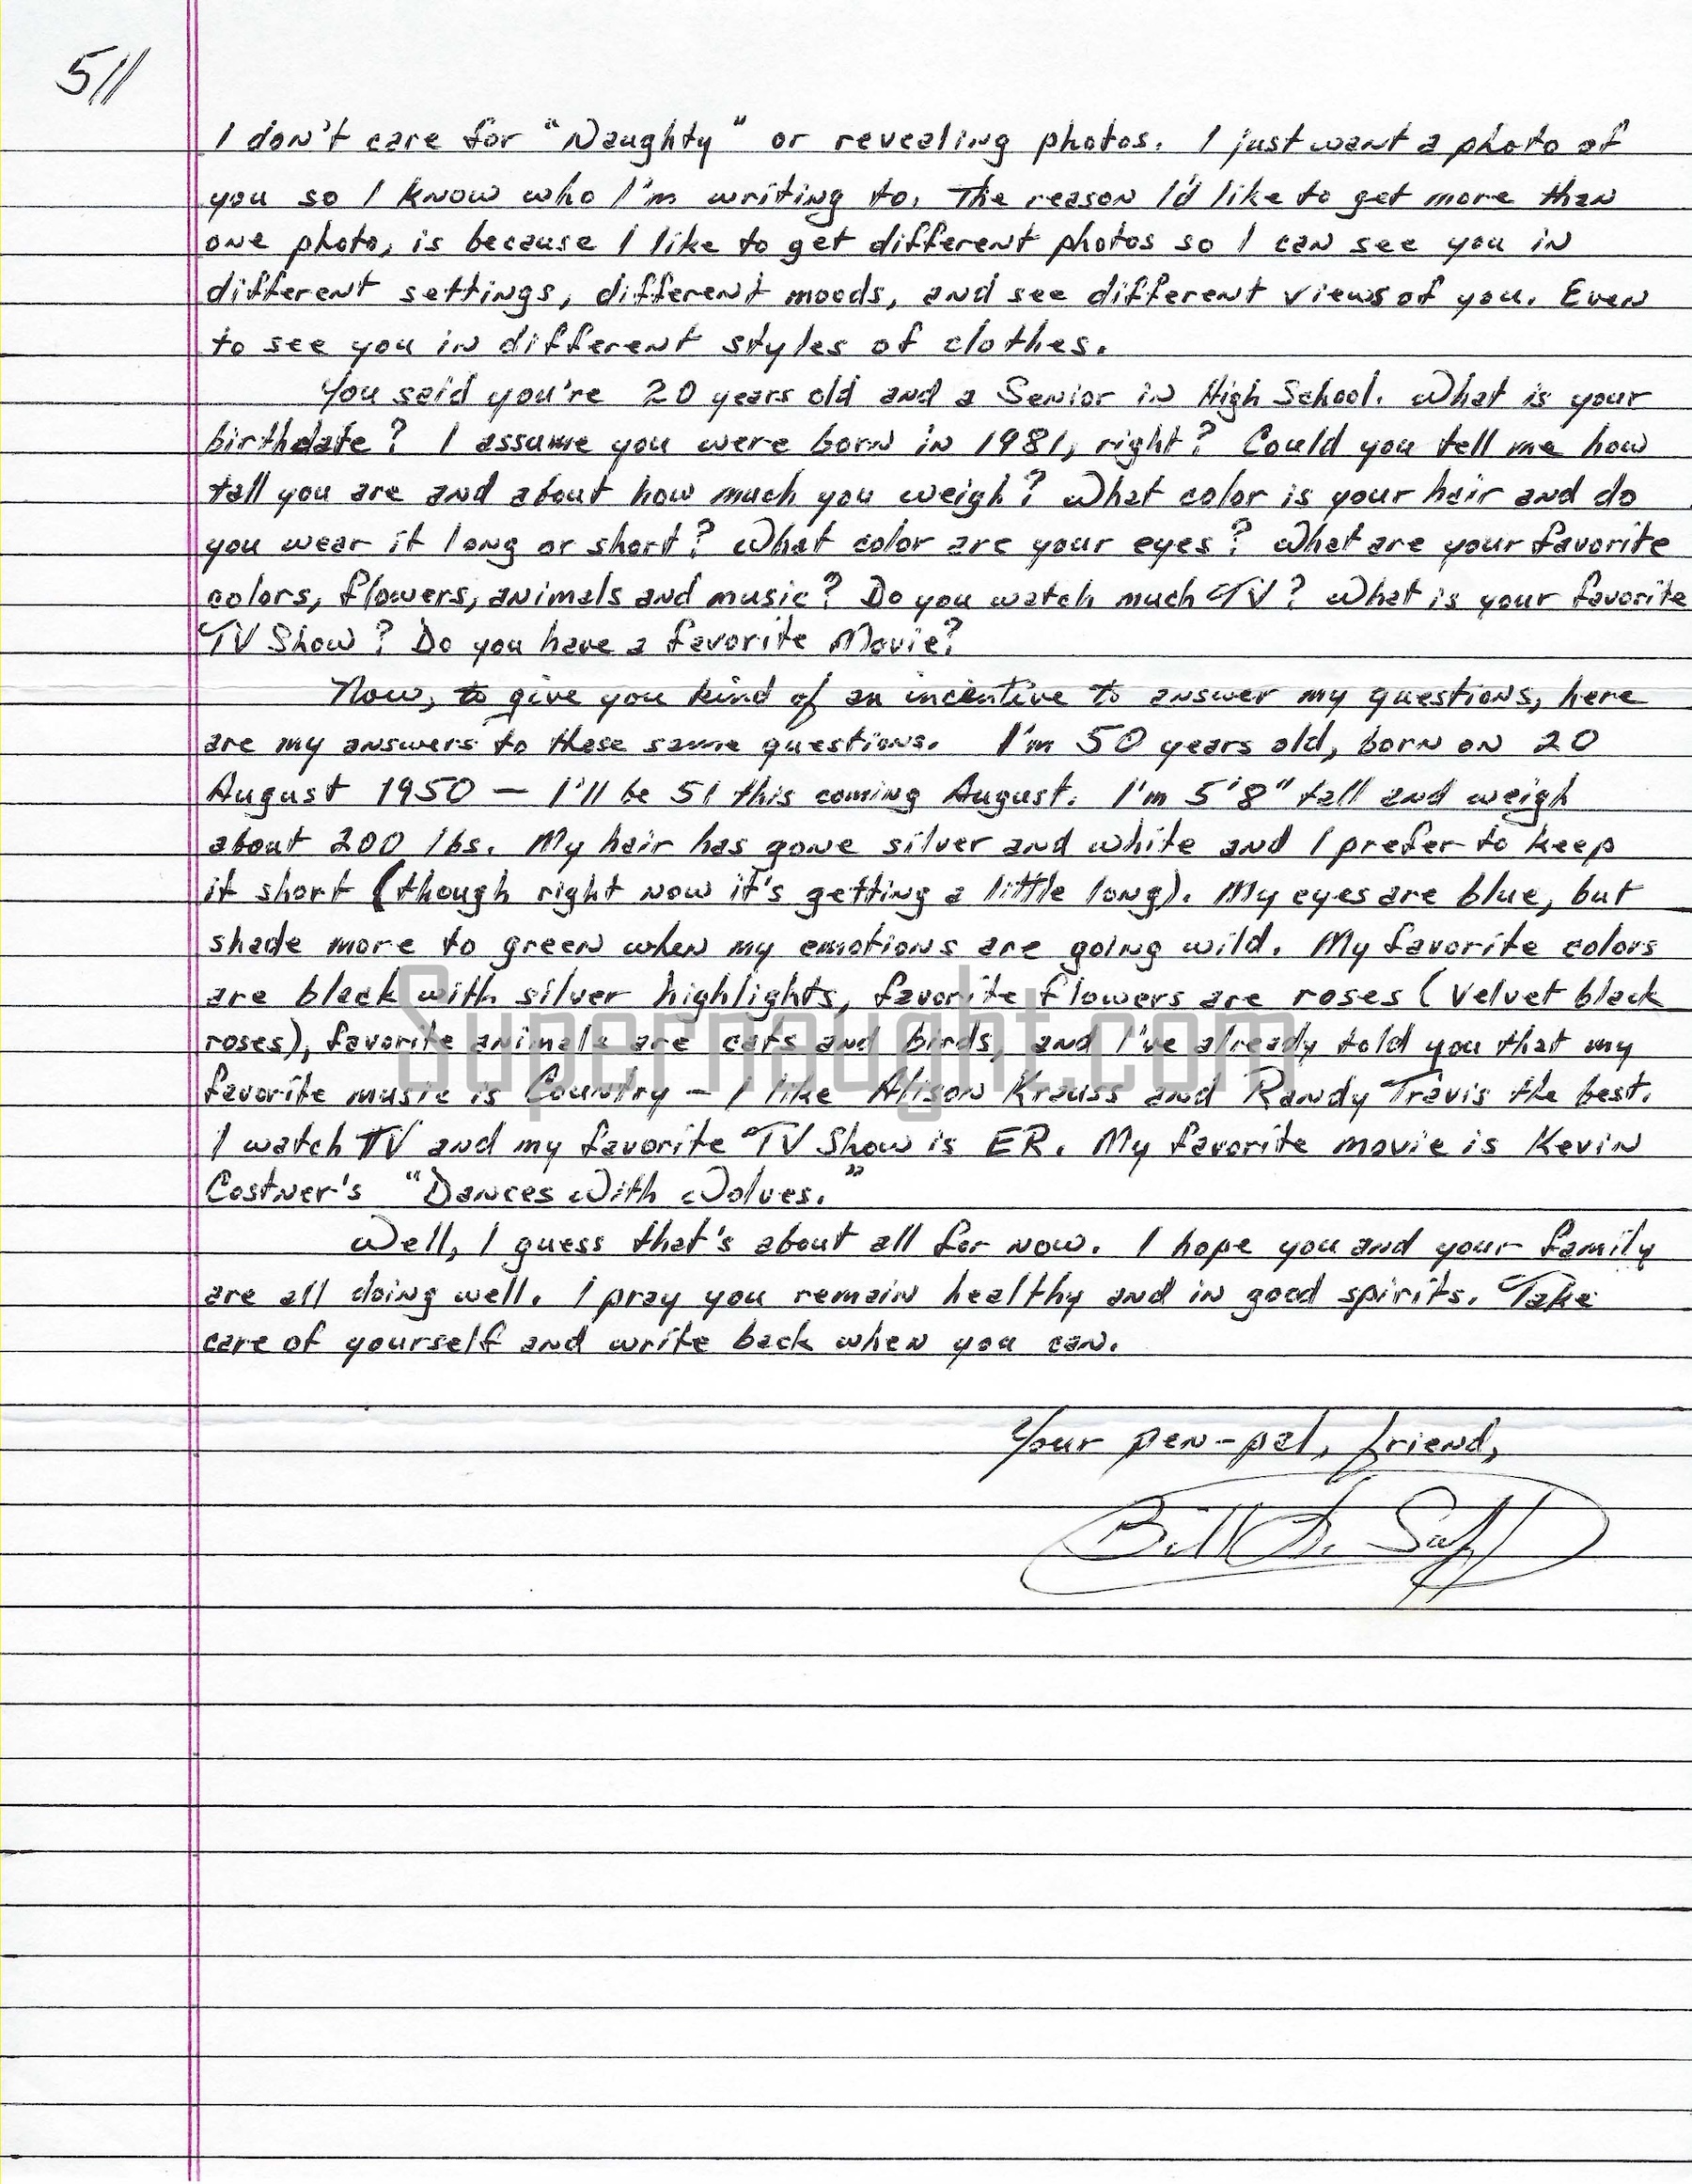 5//
I don't care for "Naughty" or revealing photos. I just want a photo of
you so I know who I'm writing to. The reason I'd like to get more than
one photo, is because I like to get different photos so I can see you in
different settings, different moods, and see different views of you. Even
to see you in different styles of clothes.
You said you're 20 years old and a Senior in High School. What is your
birthdate? I assume you were born in 1981, right? Could you tell me how
tall you are and about how much you weigh? What color is your hair and do
you wear it long or short? What color are your eyes? What are your favorite
colors, flowers, animals and music? Do you watch much TV? What is your favorite
TV Show? Do you have a favorite Movie?
Now, to give you kind of an incentive to answer my questions, here
are my answers to these same questions. I'm 50 years old, born on 20
August 1950 – I'll be 51 this coming August. I'm 5'8" tall and weigh
about 200 lbs. My hair has gone silver and white and I prefer to keep
it short (though right now it's getting a little long). My eyes are blue, but
shade more to green when my emotions are going wild. My favorite colors
are black with silver highlights, favorite flowers are roses (Velvet black
roses), favorite animals are cats and birds, and I've already told you that my
favorite music is Country – I like Alison Krauss and Randy Travis the best.
I watch TV and my favorite TV Show is ER. My favorite movie is Kevin
Costner's "Dances With Wolves."
Well, I guess that's about all for now. I hope you and your family
are all doing well. I pray you remain healthy and in good spirits. Take
care of yourself and write back when you can.
Your pen-pal, friend,
Bill
Supernaught.com